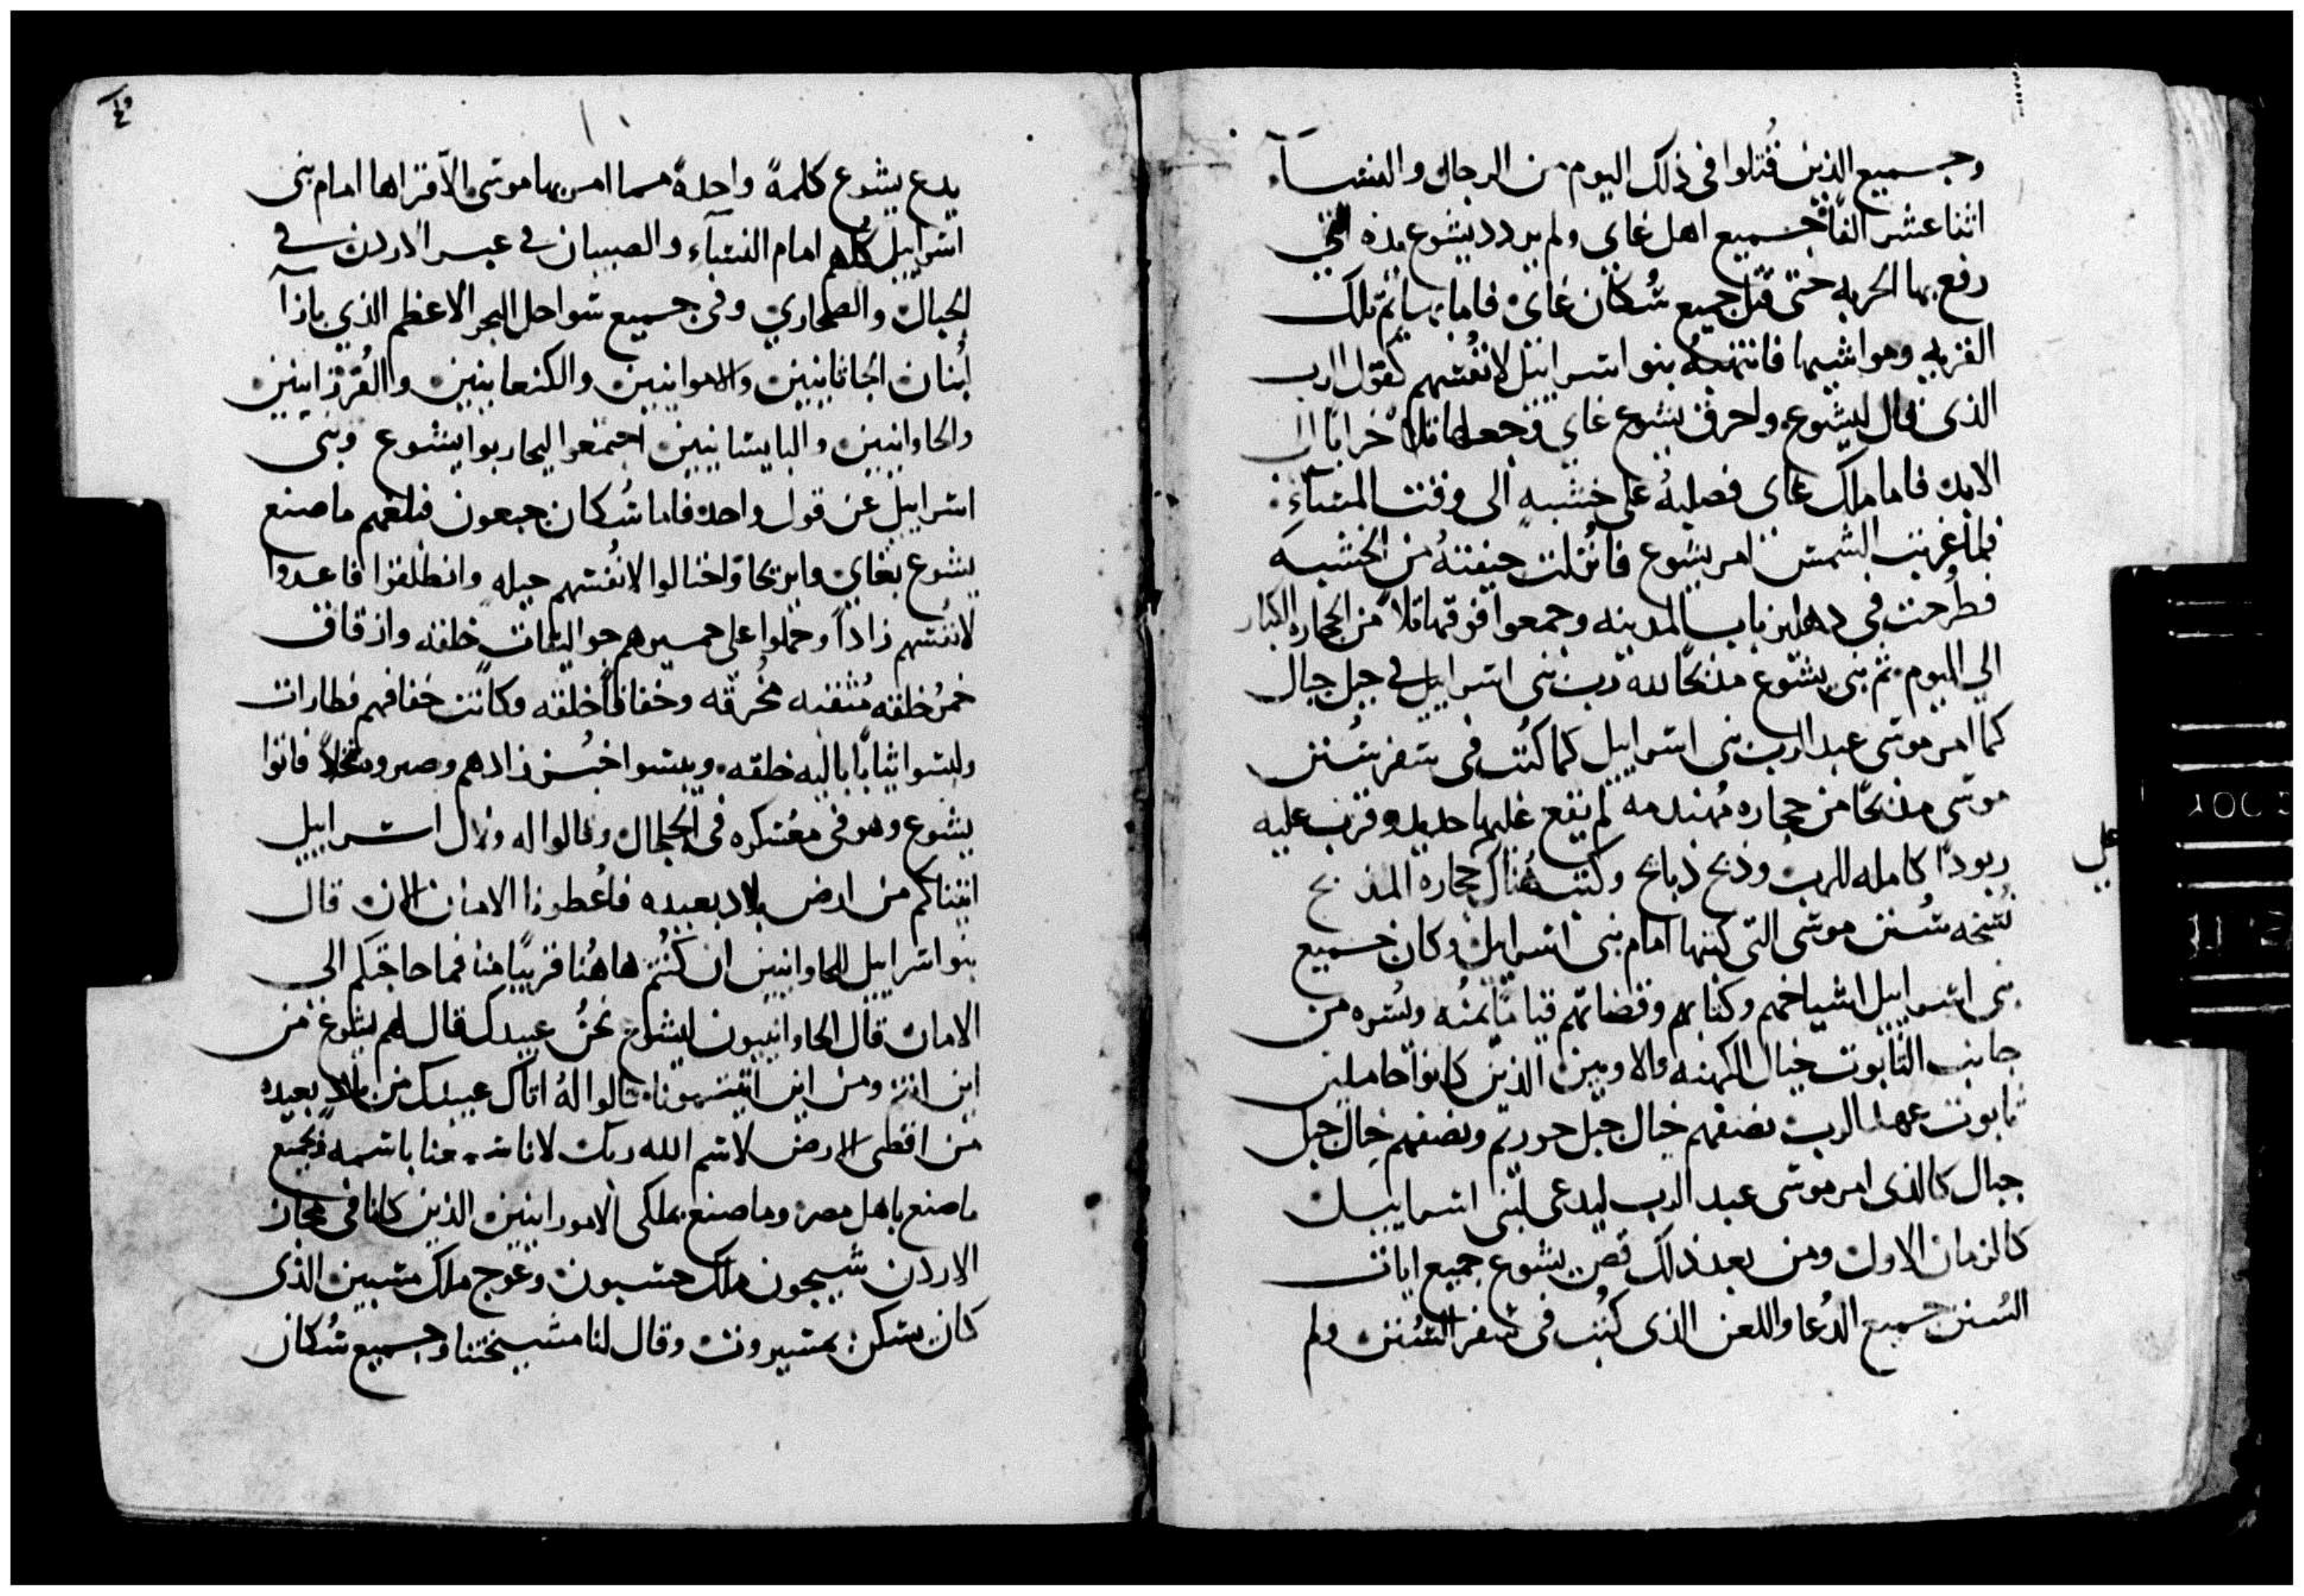 وجميع الذين قُتلوا في ذلك اليوم من الرجال والنسآء
اثنا عشر الفًا جميع اهل غاي ولم يردد يشوع يده التي
رفع بها الحربه حتى قُتل جميع سُكان غاي فاما بهايم تلك
القريه ومواشيها فانتهبه بنو اسراييل لانفُسهم كقول الرب
الذي قال ليشوع واحرق يشوع غاي وجعلها تلاً خرابًا الى
الابد فاما ملك غاي فصلبهُ على خشبهٍ الى وقت المسآء
فلما غربت الشمس امر يشوع فانُزلت جيفتهُ من الخشبه
فطُرحت في دهليز باب المدينه وجمعوا فوقها تلاً من الحجاره الكبار
الي اليوم ثم بنى يشوع مذبحًا لله رب بني اسراييل في جبل جبال
كما امر موسى عبد الرب بني اسراييل كما كُتب في سفر سُنن
موسى مذبحًا من حجاره مُهندمه لم يقع عليها حديد وقرب عليه
ربودًا كامله للرب وذبح ذبايح وكتب هُناك حجاره المذبح
على
نُسخه سُنن موسى التي كتبها امام بني اسراييل وكان جميع
بني اسراييل اشياخهم وكتابهم وقضاتهم قيامًا يمنُه ويُسره من
جانب التابوت حيال الكهنه والاويين الذين كانوا حاملين
تابوت عهد الرب نصفهم حيال جبل حوريم ونصفهم حيال جبل
جبال كالذي امر موسى عبد الرب ليدعى لبني اسراييل
كالزمان الاول ومن بعد ذلك قص يشوع جميع ايات
السُنن جميع الدُعا واللعن الذي كُتب في سفر السُنن ولم
يدع يشوع كلمةً واحدةً مما امر بها موسى الاّ قراها امام بني
اسراييل كلهم امام النسآء والصبيان في عبر الاردن في
الجبال والصحاري وفي جميع سواحل البحر الاعظم الذي بازآ
لُبنان الحاثانيين والاموانيين والكنعانيين والفُرزانيين
والحاوانيين واليابسانيين اجتمعوا ليحاربوا يشوع وبني
اسراييل عن قول واحد فاما سُكان جبعون فبلغهم ما صنع
يشوع بغاي وايريحا واحتالوا لانفُسهم حيله وانطلقوا فاعدوا
لانفُسهم زاداً وحملوا على حميرهم جواليقات خلقه وازقاق
خمر خلقه مُثقبه مُخرقه وخفافاً خلقه وكانت خفافهم قطارات
ولبسوا ثيابًا باليه خلقه ويبسوا خُبز زادهم وصيروه نُخلاً فاتوا
يشوع وهو في معُسكره في الجلجال وقالوا له ولال اسراييل
اتيناكم من ارض بلاد بعيده فاعُطونا الامان الان قال
بنو اسراييل للحاوانيين ان كُنتم هاهُنا قريبًا منا فما حاجتكم الى
الامان قال الحاوانييون ليشوع نحنُ عبيدك قال لهم يشوع من
اين انتم ومن اين اتيتمونا قالوا لهُ اتاك عبيدك من بلادٍ بعيده
من اقطى الارض لاسم الله ربك لانا سمعنا باسمه وبجميع
ما صنع باهل مصر وما صنع بملكى الامورانيين الذين كانا في مجاز
الاردن شيحون ملك حسبون وعوج ملك متبين الذي
كان يسكن بمسيروت وقال لنا مشيختنا وجميع سُكان